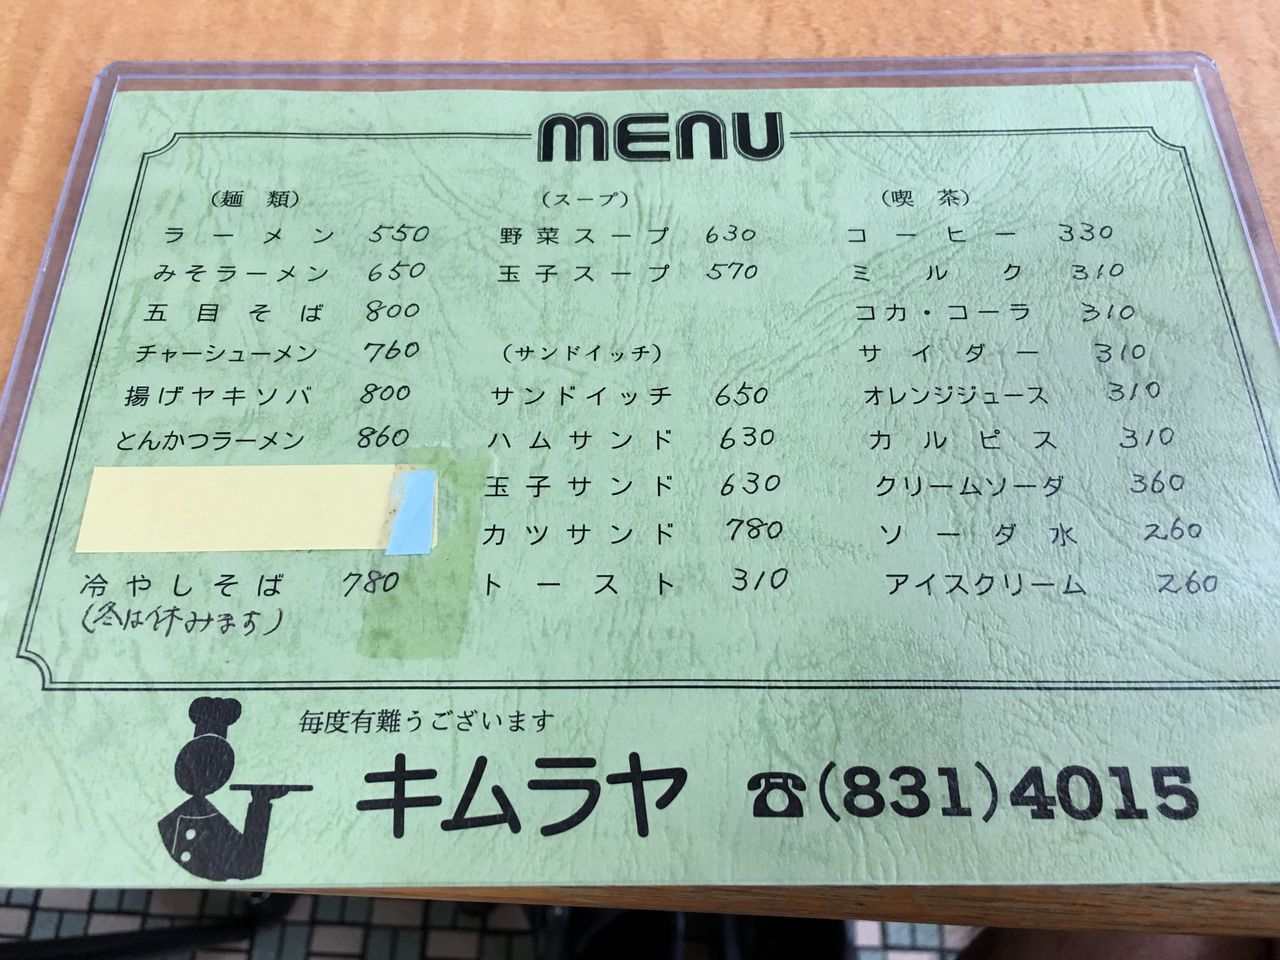 MENU
(麺 類)
ラーメン 550
みそラーメン 650
五目そば 800
チャーシューメン 760
揚げヤキソバ 800
とんかつラーメン 860
冷やしそば 780
(冬は休みます)
(スープ)
野菜スープ 630
玉子スープ 570
(サンドイッチ)
サンドイッチ 650
ハムサンド 630
玉子サンド 630
カツサンド 780
トースト 310
(喫 茶)
コーヒー 330
ミルク 310
コカ・コーラ 310
サイダー 310
オレンジジュース 310
カルピス 310
クリームソーダ 360
ソーダ水 260
アイスクリーム 260
毎度有難うございます
キムラヤ ☎(831)4015